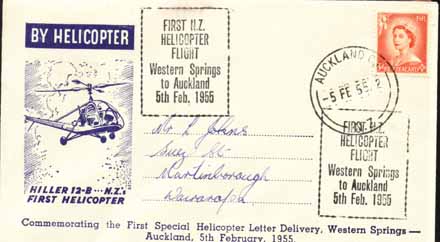 BY HELICOPTER
HILLER 12-B - - - N.Z.'s
FIRST HELICOPTER
FIRST N.Z.
HELICOPTER
FLIGHT
Western Springs
to Auckland
5th Feb. 1955
AUCKLAND
-5 FE 55
N.Z.
Mr L Johns
Suez St
Martinborough
Wairarapa
FIRST N.Z.
HELICOPTER
FLIGHT
Western Springs
to Auckland
5th Feb. 1955
Commemorating the First Special Helicopter Letter Delivery, Western Springs —
Auckland, 5th February, 1955.